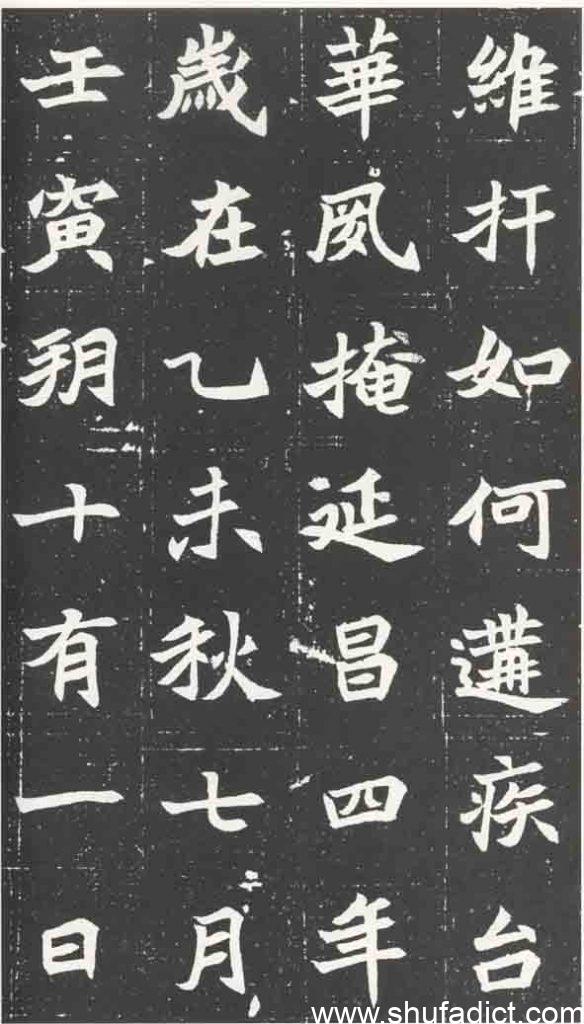 維扞如何遘疾台
華夙掩延昌四年
歲在乙未秋七月
壬寅朔十有一日
www.shufadict.com